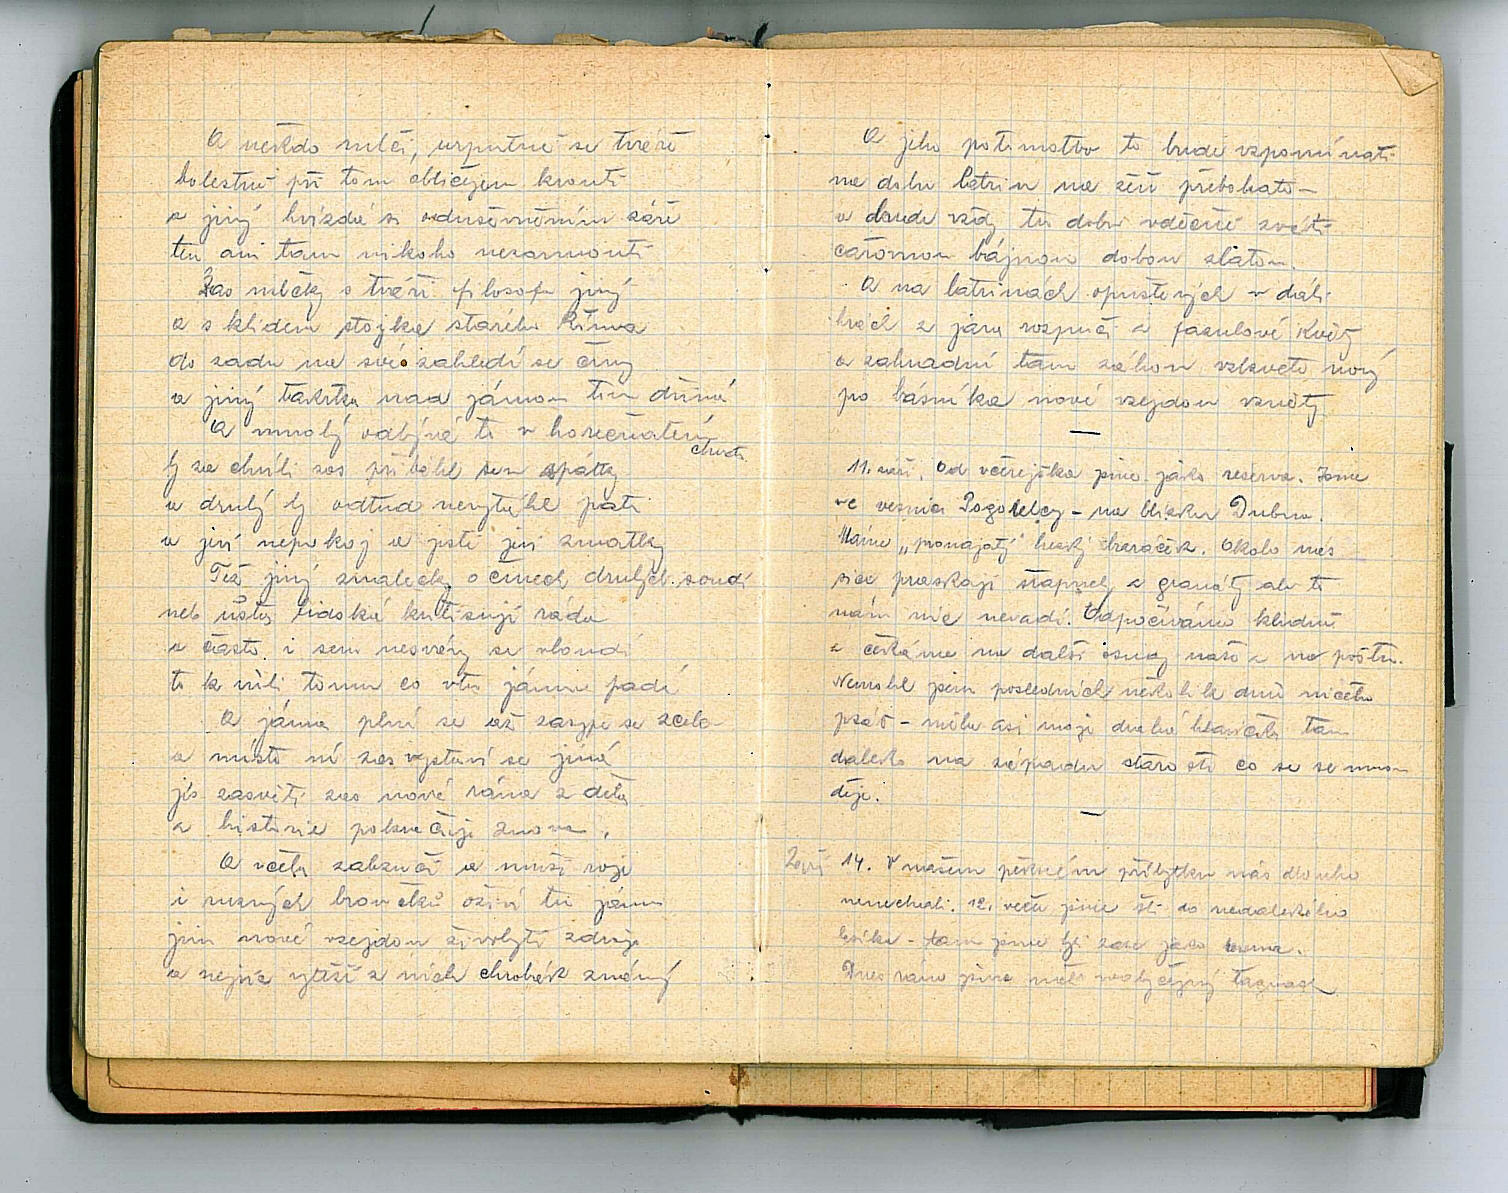 A někdo mlčí, urputně se tváře
bolestně při tom obličejem kroutí
a jiný hvízdá si oduševněním záře
ten ani tam nikoho nezarmoutí
Zas mlčky s tváří filosofa jiný
a s klidem stojka starého Říma
do zadu na své zahledí se činy
a jiný taktika nad jámou tou dřímá
A mnohý odbývá to v horečnatém
chvatu
by za chvíli zas přiběhl sem zpátky
a druhý by odtud nevytáhl paty
a jeví nepokoj a jisté jeví zmatky
Též jiný znalecky o činech druhých soudí
neb ústa lidská kritisují ráda
a často i sem nesváry se vloudí
to k vůli tomu co v tu jámu padá
A jáma plní se až zasype se zcela
a místo ní zas vystaví se jiná
jís zasvětí zas nové rána z děla
a historie pokračuje znova.
A včela zabzučí a muší roje
i různých broučků oživí tu jámu
jim nové vzejdou živobytí zdroje
a nejvíc vytěží z nich chrobák známý
A jeho potomstvo to bude vzpomínati
na dobu latrin na žír přebohatou
a bude vždy tu dobu vděčně zváti
čarovnou bájnou dobou zlatou.
A na latrinách opuštěných v dáli
hrách z jara rozpučí a fazulové květy
a zahradní tam záhon vzkvete nový
po básníka nové vzejdou vzněty
—
11. září. Od včerejška jsme jako reserva. Jsme
ve vesnici Pogorelcy – na blízku Dubna.
Máme „pronajatý" hezký baráček. Okolo nás
sice praskají šrapnely a granáty ale to
nám nic nevadí. Odpočíváme klidně
a čekáme na další osudy naše a na poštu.
Nemohl jsem posledních několik dnů ničeho
psát – měla asi moje drahá hlavička tam
daleko na západu starosti co se se mnou
děje.
—
Září 14. V našem pěkném příbytku nás dlouho
nenechali. 12. večer jsme šli do nedalekého
lesíka – tam jsme byli zase jako reserva.
Dnes ráno jsme měli neobyčejný